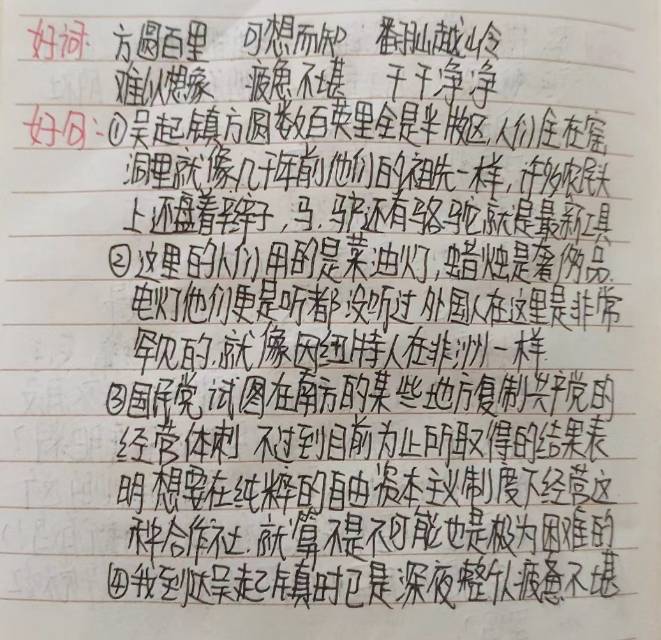 好词: 方圆百里 可想而知 翻山越岭
难以想象 疲惫不堪 干干净净
好句: ①吴起镇方圆数百英里全是半牧区,人们住在窑
洞里就像几千年前他们的祖先一样,许多农民头
上还盘着辫子,马、驴还有骆驼就是最新工具
②这里的人们用的是菜油灯,蜡烛是奢侈品
电灯他们更是听都没听过 外国人在这里是非常
罕见的,就像因纽特人在非洲一样
③国民党试图在南方的某些地方复制共产党的
经营体制 不过到目前为止所取得的结果表
明 想要在纯粹的自由资本主义制度下经营这
种合作社,就算不是不可能也是极为困难的
④我到达吴起镇时已是深夜 整个人疲惫不堪